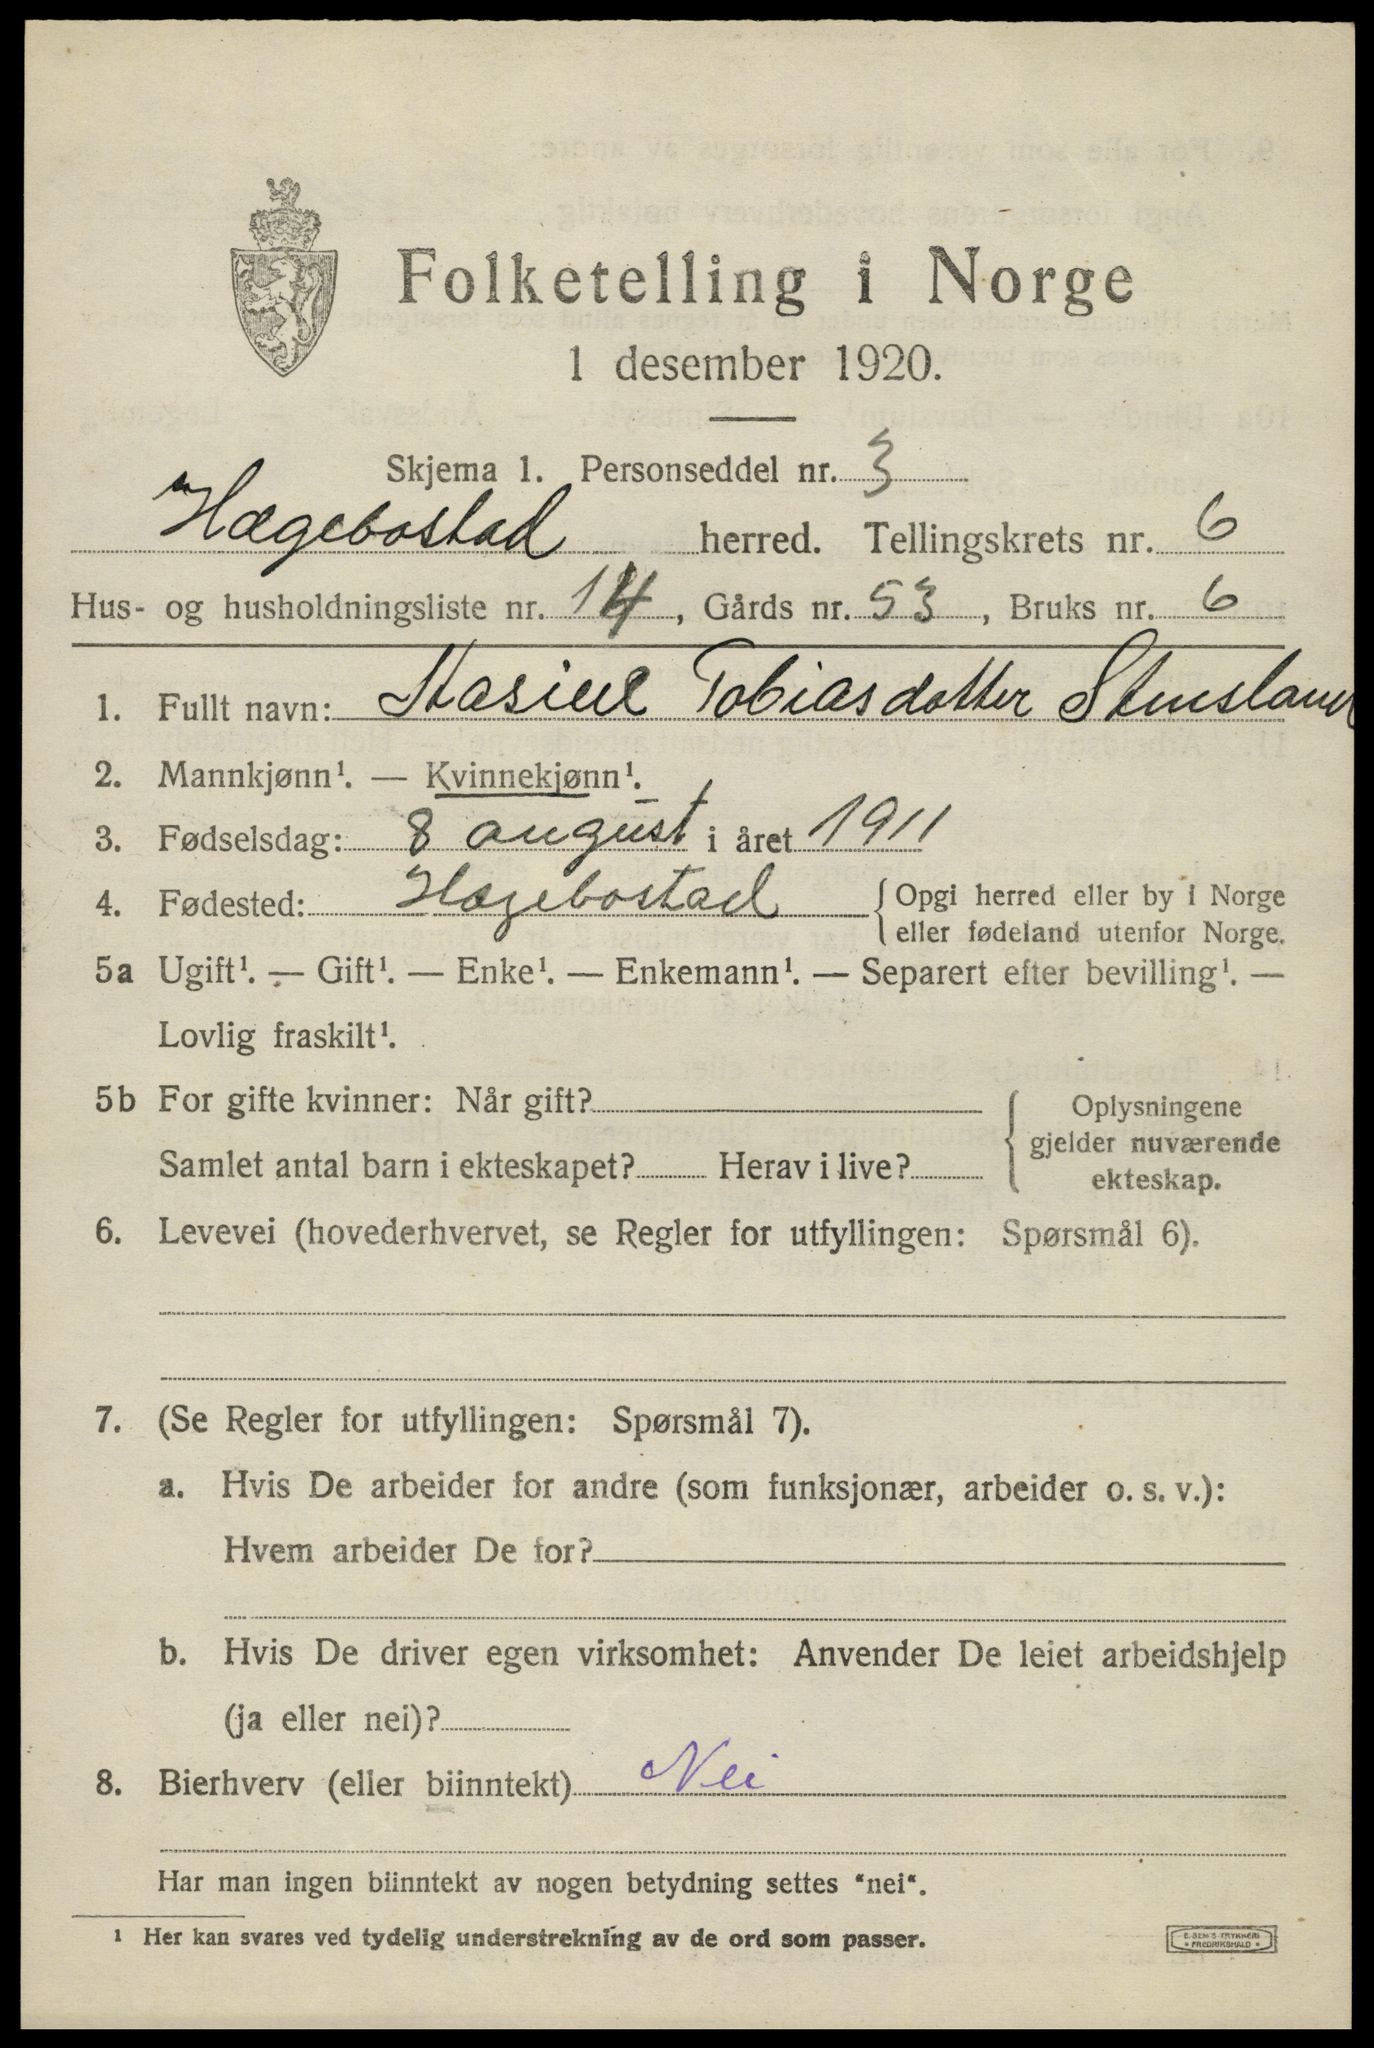 Folketelling i Norge
1 desember 1920.
Skjema 1. Personseddel nr. 3
Hægebostad herred. Tellingskrets nr. 6
Hus- og husholdningsliste nr. 14, Gårds nr. 53, Bruks nr. 6
1. Fullt navn: Stasine Tobiasdotter Stensland
2. Mannkjønn¹. — Kvinnekjønn¹.
3. Fødselsdag: 8 august i året 1911
4. Fødested: Hægebostad { Opgi herred eller by i Norge
eller fødeland utenfor Norge.
5a Ugift¹. — Gift¹. — Enke¹. — Enkemann¹. — Separert efter bevilling¹. —
Lovlig fraskilt¹.
5b For gifte kvinner: Når gift?
Samlet antal barn i ekteskapet? Herav i live?
{ Oplysningene
gjelder nuværende
ekteskap.
6. Levevei (hovederhvervet, se Regler for utfyllingen: Spørsmål 6).
7. (Se Regler for utfyllingen: Spørsmål 7).
a. Hvis De arbeider for andre (som funksjonær, arbeider o. s. v.):
Hvem arbeider De for?
b. Hvis De driver egen virksomhet: Anvender De leiet arbeidshjelp
(ja eller nei)?
8. Bierhverv (eller biinntekt) Nei
Har man ingen biinntekt av nogen betydning settes "nei".
¹ Her kan svares ved tydelig understrekning av de ord som passer.
E. SEM'S TRYKKERI
FREDRIKSHALD